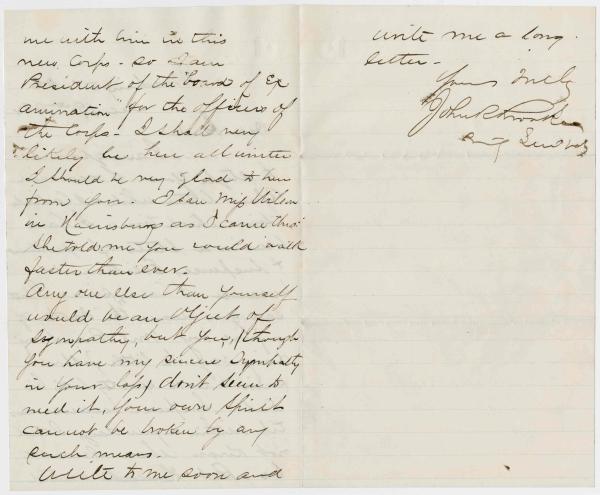 me with him in this
new Corps - so I am
President of the "board of Ex
amination" for the officers of
the Corps - I shall very
likely be here all winter
I should be very glad to hear
from you. I saw Miss Wilson
in Harrisburg as I came thro'
She told me you could walk
faster than ever.
Any one else than yourself
would be an object of
sympathy, but you, (though
you have my sincere sympathy
in your loss) don't seem to
need it, your own spirit
cannot be broken by any
such means.
Write to me soon and
write me a long
letter -
Yours Truly
John R Brooke
Brig Genl Vols